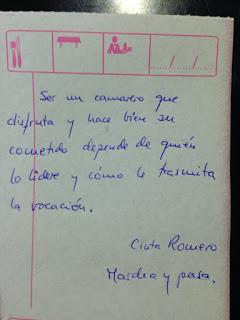 Ser un camarero que
disfruta y hace bien su
cometido depende de quién
lo lidere y cómo le trasmita
la vocación.
Cinta Romero
Mardea y pasa.